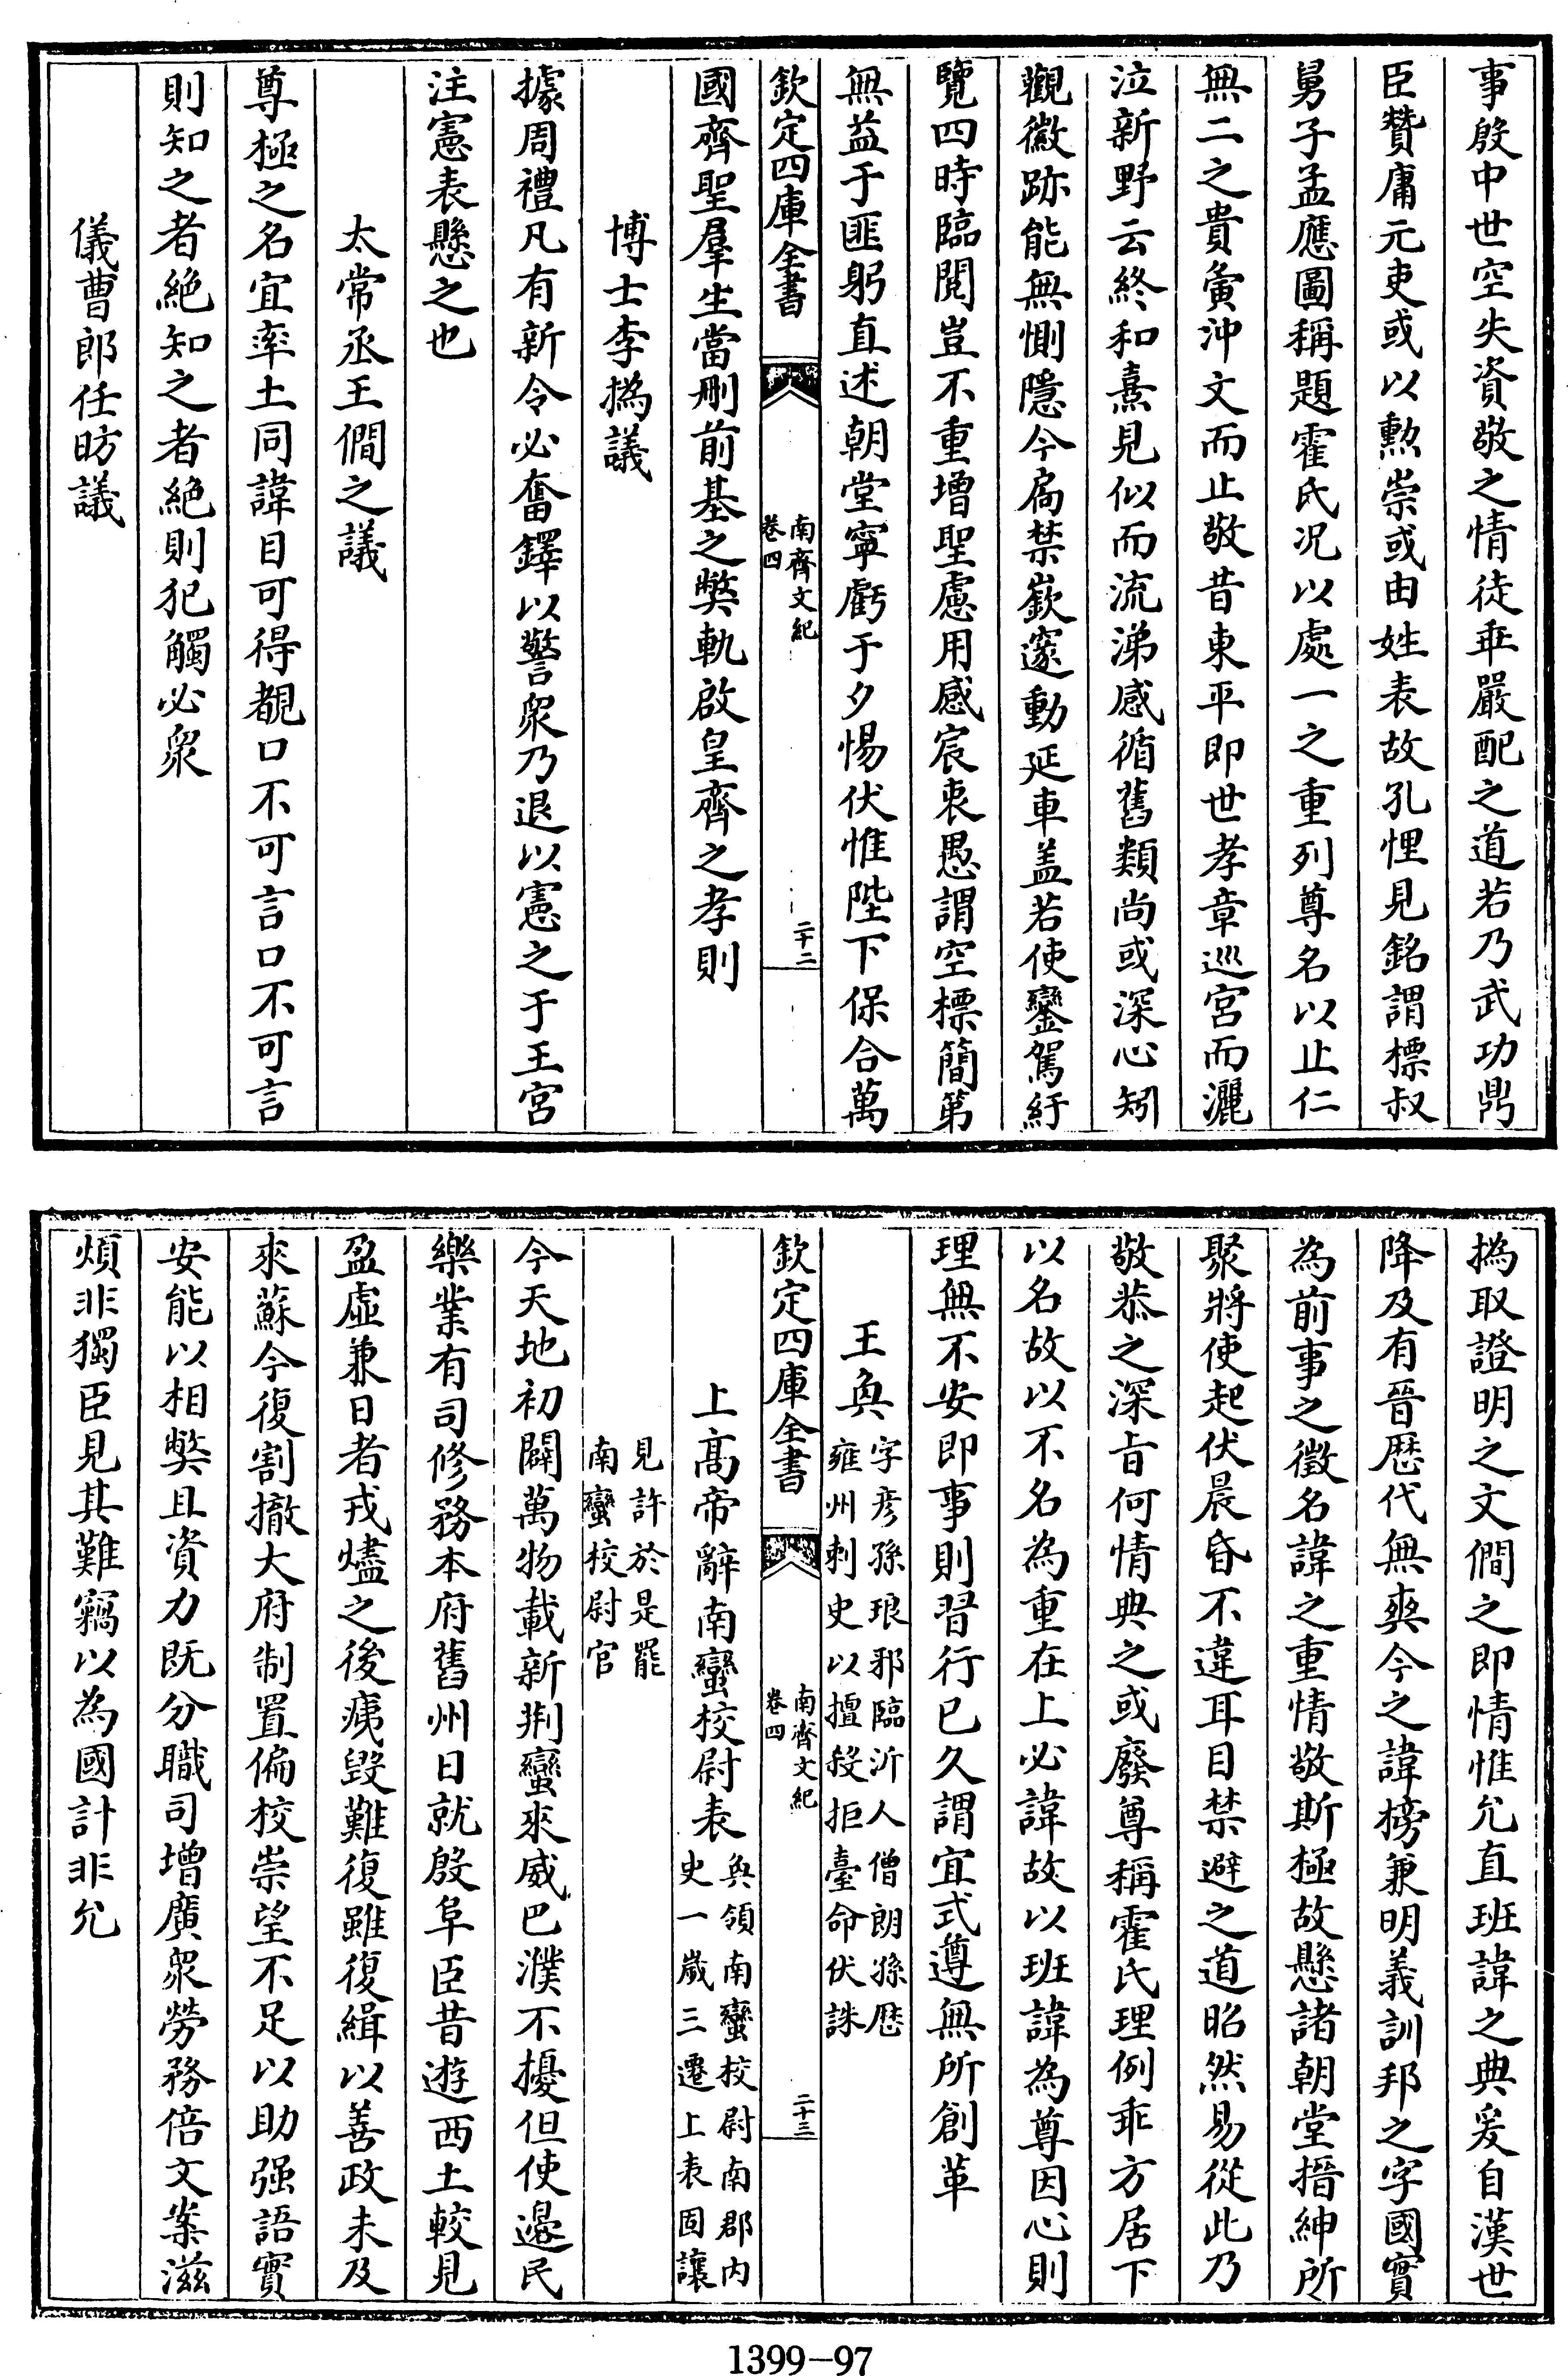 事殷中世空失資敬之情徒乖嚴配之道若乃武功鼎
臣贊庸元吏或以勲崇或由姓表故孔悝見銘謂標叔
舅子孟應圖稱題霍氏况以處一之重列尊名以止仁
無二之貴夤沖文而止敬昔東平即世孝章巡宮而灑
泣新野云終和熹見似而流涕感循舊類尚或深心矧
觀徽跡能無惻隱今扃禁嶔邃動延車盖若使鑾駕紆
覽四時臨閱豈不重增聖慮用感宸衷愚謂空標簡第
無益于匪躬直述朝堂寧虧于夕惕伏惟陛下保合萬
欽定四庫全書
南齊文紀
卷四
二十二
國齊聖羣生當刪前基之獘軌啟皇齊之孝則
博士李撝議
據周禮凡有新令必奮鐸以警衆乃退以憲之于王宮
注憲表懸之也
太常丞王僩之議
尊極之名宜率土同諱目可得覩口不可言口不可言
則知之者絶知之者絶則犯觸必衆
儀曹郎任昉議
撝取證明之文僩之即情惟允直班諱之典爰自漢世
降及有晉歴代無爽今之諱榜兼明義訓邦之字國實
為前事之徵名諱之重情敬斯極故懸諸朝堂搢紳所
聚將使起伏晨昏不違耳目禁避之道昭然易從此乃
敬恭之深㫖何情典之或廢尊稱霍氏理例乖方居下
以名故以不名為重在上必諱故以班諱為尊因心則
理無不安即事則習行已久謂宜式遵無所創革
王奐
字彦孫琅邪臨沂人僧朗孫歴
雍州刺史以擅殺拒臺命伏誅
欽定四庫全書
南齊文紀
卷四
二十三
上髙帝辭南蠻校尉表
奐領南蠻校尉南郡内
史一嵗三遷上表固讓
見許於是罷
南蠻校尉官
今天地初闢萬物載新荆蠻來威巴濮不擾但使邊民
樂業有司修務本府舊州日就殷阜臣昔遊西土較見
盈虛兼日者戎燼之後痍毁難復雖復緝以善政未及
來蘇今復割撤大府制置偏校崇望不足以助强語實
安能以相獘且資力既分職司增廣衆勞務倍文案滋
煩非獨臣見其難竊以為國計非允
1399-97